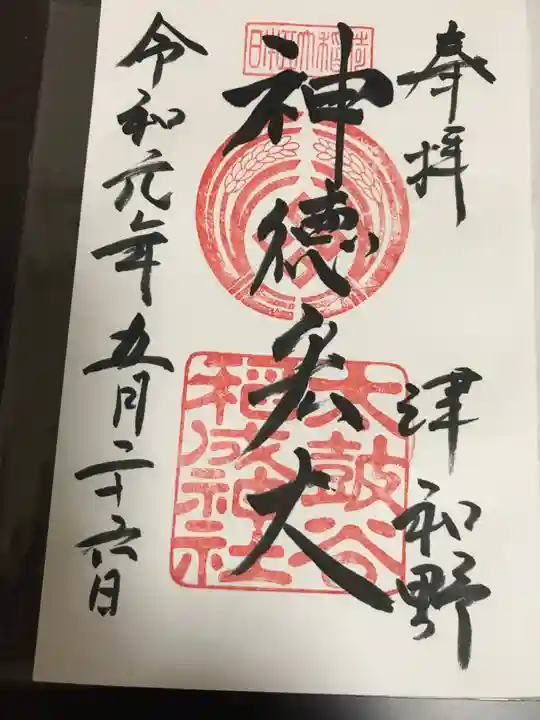 奉拝
津和野
神徳宏大
太皷谷
稲成神社
令和元年五月二十六日